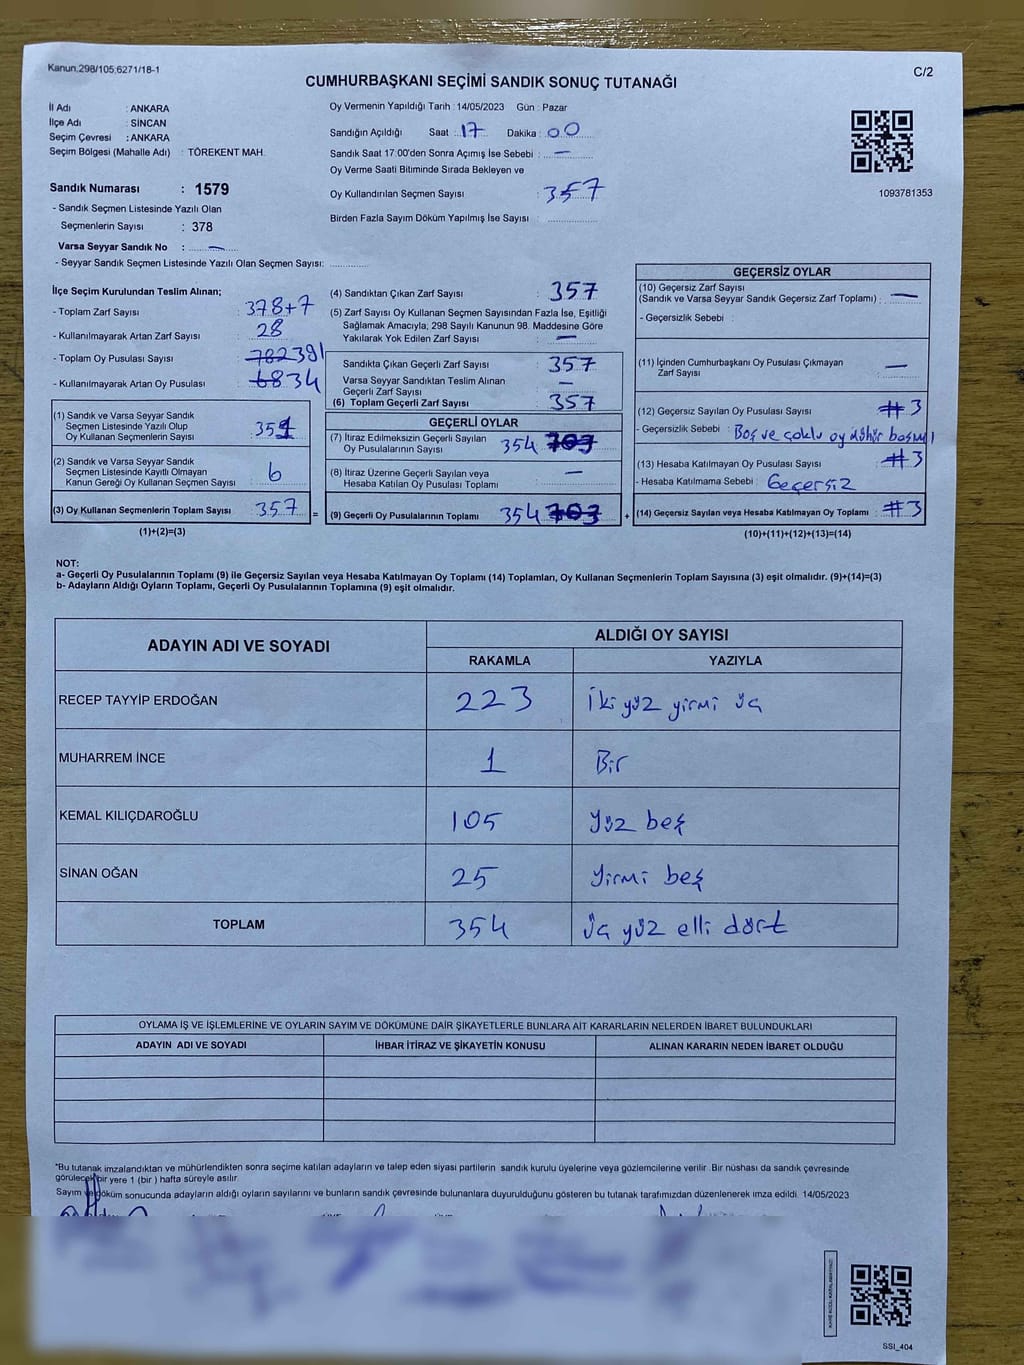 Kanun:298/105;6271/18-1
C/2
CUMHURBAŞKANI SEÇİMİ SANDIK SONUÇ TUTANAĞI
İl Adı : ANKARA
İlçe Adı : SİNCAN
Seçim Çevresi : ANKARA
Seçim Bölgesi (Mahalle Adı) : TÖREKENT MAH.
Sandık Numarası : 1579
- Sandık Seçmen Listesinde Yazılı Olan
Seçmenlerin Sayısı : 378
Varsa Seyyar Sandık No : —
- Seyyar Sandık Seçmen Listesinde Yazılı Olan Seçmen Sayısı:
Oy Vermenin Yapıldığı Tarih : 14/05/2023 Gün : Pazar
Sandığın Açıldığı Saat : 17 Dakika : 00
Sandık Saat 17:00'den Sonra Açılmış İse Sebebi : —
Oy Verme Saati Bitiminde Sırada Bekleyen ve
Oy Kullandırılan Seçmen Sayısı : 357
Birden Fazla Sayım Döküm Yapılmış İse Sayısı :
1093781353
İlçe Seçim Kurulundan Teslim Alınan;
- Toplam Zarf Sayısı : 378+7
- Kullanılmayarak Artan Zarf Sayısı : 28
- Toplam Oy Pusulası Sayısı : 782 391
- Kullanılmayarak Artan Oy Pusulası : 68 34
(1) Sandık ve Varsa Seyyar Sandık
Seçmen Listesinde Yazılı Olup
Oy Kullanan Seçmenlerin Sayısı : 351
(2) Sandık ve Varsa Seyyar Sandık
Seçmen Listesinde Kayıtlı Olmayan
Kanun Gereği Oy Kullanan Seçmen Sayısı : 6
(3) Oy Kullanan Seçmenlerin Toplam Sayısı : 357 =
(1)+(2)=(3)
(4) Sandıktan Çıkan Zarf Sayısı : 357
(5) Zarf Sayısı Oy Kullanan Seçmen Sayısından Fazla İse, Eşitliği
Sağlamak Amacıyla; 298 Sayılı Kanunun 98. Maddesine Göre
Yakılarak Yok Edilen Zarf Sayısı : —
Sandıkta Çıkan Geçerli Zarf Sayısı : 357
Varsa Seyyar Sandıktan Teslim Alınan
Geçerli Zarf Sayısı : —
(6) Toplam Geçerli Zarf Sayısı : 357
GEÇERLİ OYLAR
(7) İtiraz Edilmeksizin Geçerli Sayılan
Oy Pusulalarının Sayısı : 354 703
(8) İtiraz Üzerine Geçerli Sayılan veya
Hesaba Katılan Oy Pusulası Toplamı : —
(9) Geçerli Oy Pusulalarının Toplamı : 354 703 +
GEÇERSİZ OYLAR
(10) Geçersiz Zarf Sayısı
(Sandık ve Varsa Seyyar Sandık Geçersiz Zarf Toplamı) : —
- Geçersizlik Sebebi :
(11) İçinden Cumhurbaşkanı Oy Pusulası Çıkmayan
Zarf Sayısı : —
(12) Geçersiz Sayılan Oy Pusulası Sayısı : 3
- Geçersizlik Sebebi : Boş ve çoklu oy mühür
(13) Hesaba Katılmayan Oy Pusulası Sayısı : 3
- Hesaba Katılmama Sebebi : Geçersiz
(14) Geçersiz Sayılan veya Hesaba Katılmayan Oy Toplamı : 3
(10)+(11)+(12)+(13)=(14)
NOT:
a- Geçerli Oy Pusulalarının Toplamı (9) ile Geçersiz Sayılan veya Hesaba Katılmayan Oy Toplamı (14) Toplamları, Oy Kullanan Seçmenlerin Toplam Sayısına (3) eşit olmalıdır. (9)+(14)=(3)
b- Adayların Aldığı Oyların Toplamı, Geçerli Oy Pusulalarının Toplamına (9) eşit olmalıdır.
ADAYIN ADI VE SOYADI
ALDIĞI OY SAYISI
RAKAMLA YAZIYLA
RECEP TAYYİP ERDOĞAN 223 İki yüz yirmi üç
MUHARREM İNCE 1 Bir
KEMAL KILIÇDAROĞLU 105 yüz beş
SİNAN OĞAN 25 yirmi beş
TOPLAM 354 üç yüz elli dört
OYLAMA İŞ VE İŞLEMLERİNE VE OYLARIN SAYIM VE DÖKÜMÜNE DAİR ŞİKAYETLERLE BUNLARA AİT KARARLARIN NELERDEN İBARET BULUNDUKLARI
ADAYIN ADI VE SOYADI İHBAR İTİRAZ VE ŞİKAYETİN KONUSU ALINAN KARARIN NEDEN İBARET OLDUĞU
*Bu tutanak imzalandıktan ve mühürlendikten sonra seçime katılan adayların ve talep eden siyasi partilerin sandık kurulu üyelerine veya gözlemcilerine verilir. Bir nüshası da sandık çevresinde
görülecek bir yere 1 (bir) hafta süreyle asılır.
Sayım ve döküm sonucunda adayların aldığı oyların sayılarını ve bunların sandık çevresinde bulunanlara duyurulduğunu gösteren bu tutanak tarafımızdan düzenlenerek imza edildi. 14/05/2023
SSİ_404